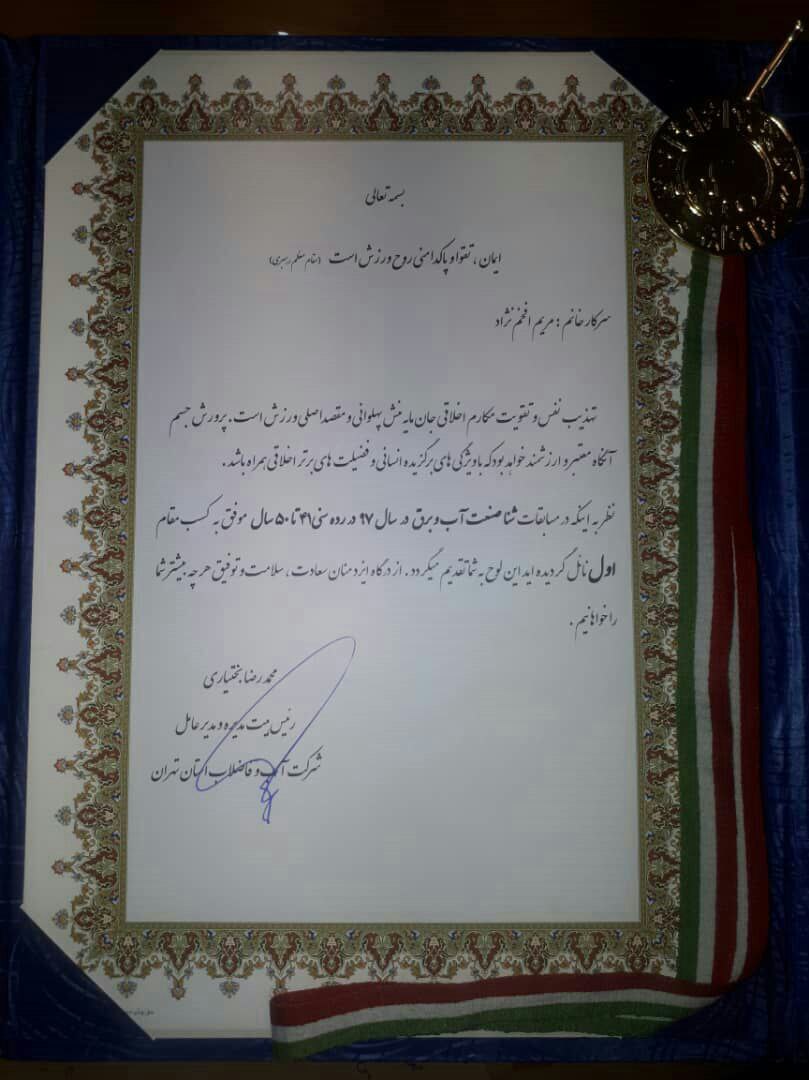 بسمه تعالی
ایمان، تقوا و پاکدامنی روح ورزش است (مقام معظم رهبری)
سرکار خانم : مریم افخم نژاد
تهذیب نفس و تقویت مکارم اخلاقی جان مایه منش پهلوانی و مقصد اصلی ورزش است. پرورش جسم
آنگاه معتبر و ارزشمند خواهد بود که با ویژگی های برگزیده انسانی و فضیلت های برتر اخلاقی همراه باشد.
نظر به اینکه در مسابقات شنا صنعت آب و برق در سال ۹۷ در رده سنی ۴۱ تا ۵۰ سال موفق به کسب مقام
اول نائل گردیده اید این لوح به شما تقدیم میگردد. از درگاه ایزد منان سعادت، سلامت و توفیق هر چه بیشتر شما
را خواهانیم.
محمد رضا بختیاری
رئیس هیت مدیره و مدیر عامل
شرکت آب و فاضلاب استان تهران